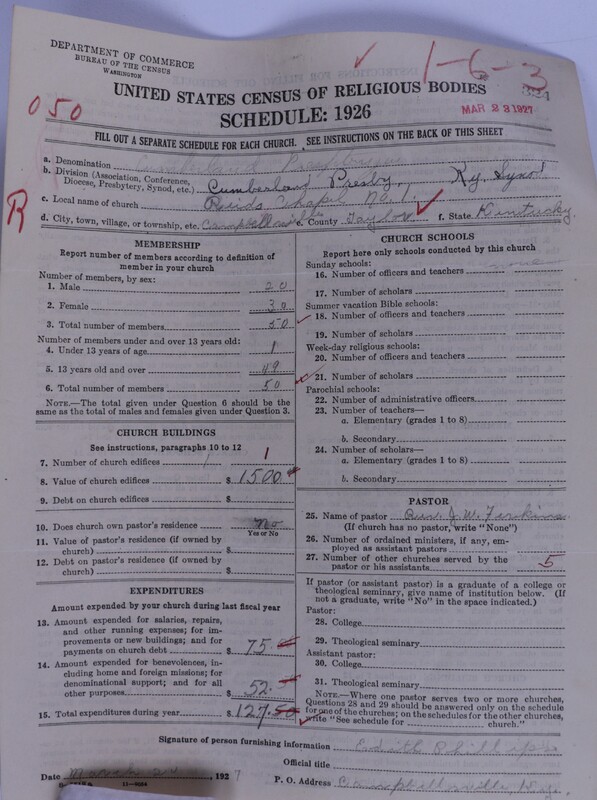 DEPARTMENT OF COMMERCE
BUREAU OF THE CENSUS
WASHINGTON
1-6-3
324
UNITED STATES CENSUS OF RELIGIOUS BODIES
MAR 23 1927
050
SCHEDULE: 1926
FILL OUT A SEPARATE SCHEDULE FOR EACH CHURCH. SEE INSTRUCTIONS ON THE BACK OF THIS SHEET
a. Denomination Cumberland Presbyterian
b. Division (Association, Conference, Diocese, Presbytery, Synod, etc.) Cumberland Presby, Ky. Synod
R
c. Local name of church Reids Chapel No. 1,
d. City, town, village, or township, etc. Campbellsville e. County Taylor f. State Kentucky.
MEMBERSHIP
Report number of members according to definition of
member in your church
Number of members, by sex:
1. Male 20
2. Female 30
3. Total number of members 50
Number of members under and over 13 years old:
4. Under 13 years of age 1
5. 13 years old and over 49
6. Total number of members 50
NOTE.—The total given under Question 6 should be the
same as the total of males and females given under Question 3.
CHURCH BUILDINGS
See instructions, paragraphs 10 to 12
7. Number of church edifices 1 1
8. Value of church edifices $1500
9. Debt on church edifices $
10. Does church own pastor's residence No
Yes or No
11. Value of pastor's residence (if owned by
church) $
12. Debt on pastor's residence (if owned by
church) $
EXPENDITURES
Amount expended by your church during last fiscal year
13. Amount expended for salaries, repairs,
and other running expenses; for im-
provements or new buildings; and for
payments on church debt $75.
14. Amount expended for benevolences, in-
cluding home and foreign missions; for
denominational support; and for all
other purposes $52.
15. Total expenditures during year $127.50
CHURCH SCHOOLS
Report here only schools conducted by this church
Sunday schools:
16. Number of officers and teachers none
17. Number of scholars
Summer vacation Bible schools:
18. Number of officers and teachers
19. Number of scholars
Week-day religious schools:
20. Number of officers and teachers
21. Number of scholars
Parochial schools:
22. Number of administrative officers
23. Number of teachers—
a. Elementary (grades 1 to 8)
b. Secondary
24. Number of scholars—
a. Elementary (grades 1 to 8)
b. Secondary
PASTOR
25. Name of pastor Rev. J. W.
(If church has no pastor, write "None")
26. Number of ordained ministers, if any, em-
ployed as assistant pastors
27. Number of other churches served by the
pastor or his assistants 5
If pastor (or assistant pastor) is a graduate of a college or
theological seminary, give name of institution below. (If
not a graduate, write "No" in the space indicated.)
Pastor:
28. College
29. Theological seminary
Assistant pastor:
30. College
31. Theological seminary
NOTE.—Where one pastor serves two or more churches,
Questions 28 and 29 should be answered only on the schedule
for one of the churches; on the schedules for the other churches,
write "See schedule for church."
Signature of person furnishing information Edith Phillips
Official title
Date March 20, 1927
P. O. Address Campbellsville Ky.
11-8054